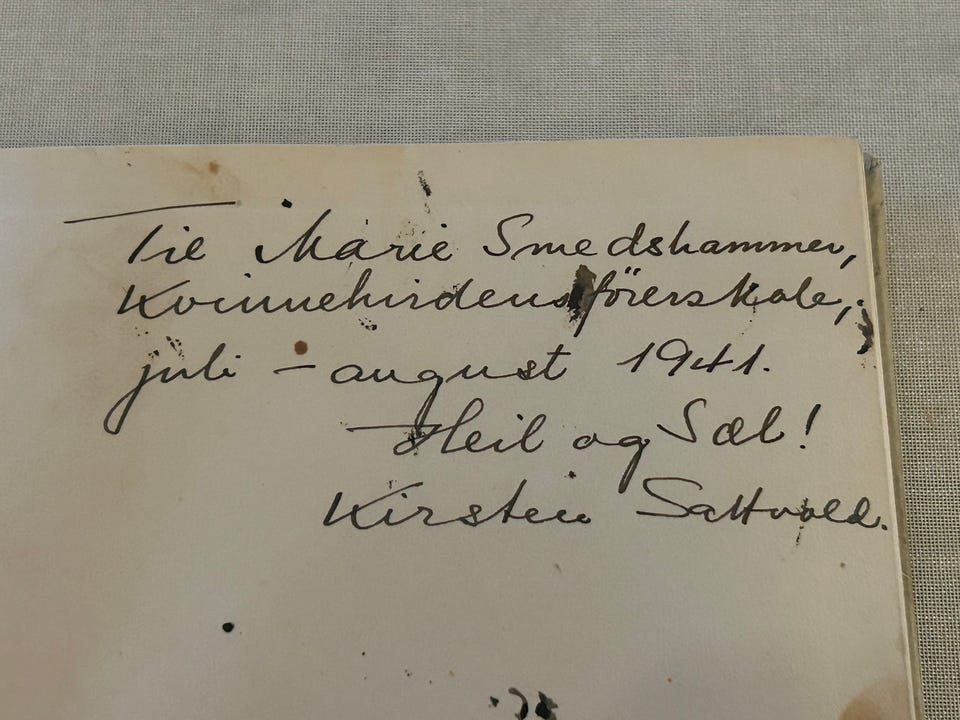 Til Marie Smedshammer,
Kvinnehirdens förerskole,
juli - august 1941.
Heil og Sæl!
Kirsten Sattvold.